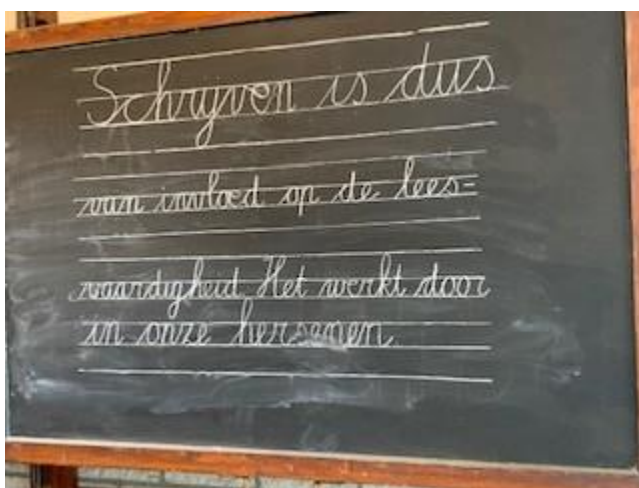 Schrijven is dus
van invloed op de lees=
vaardigheid. Het werkt door
in onze hersenen.